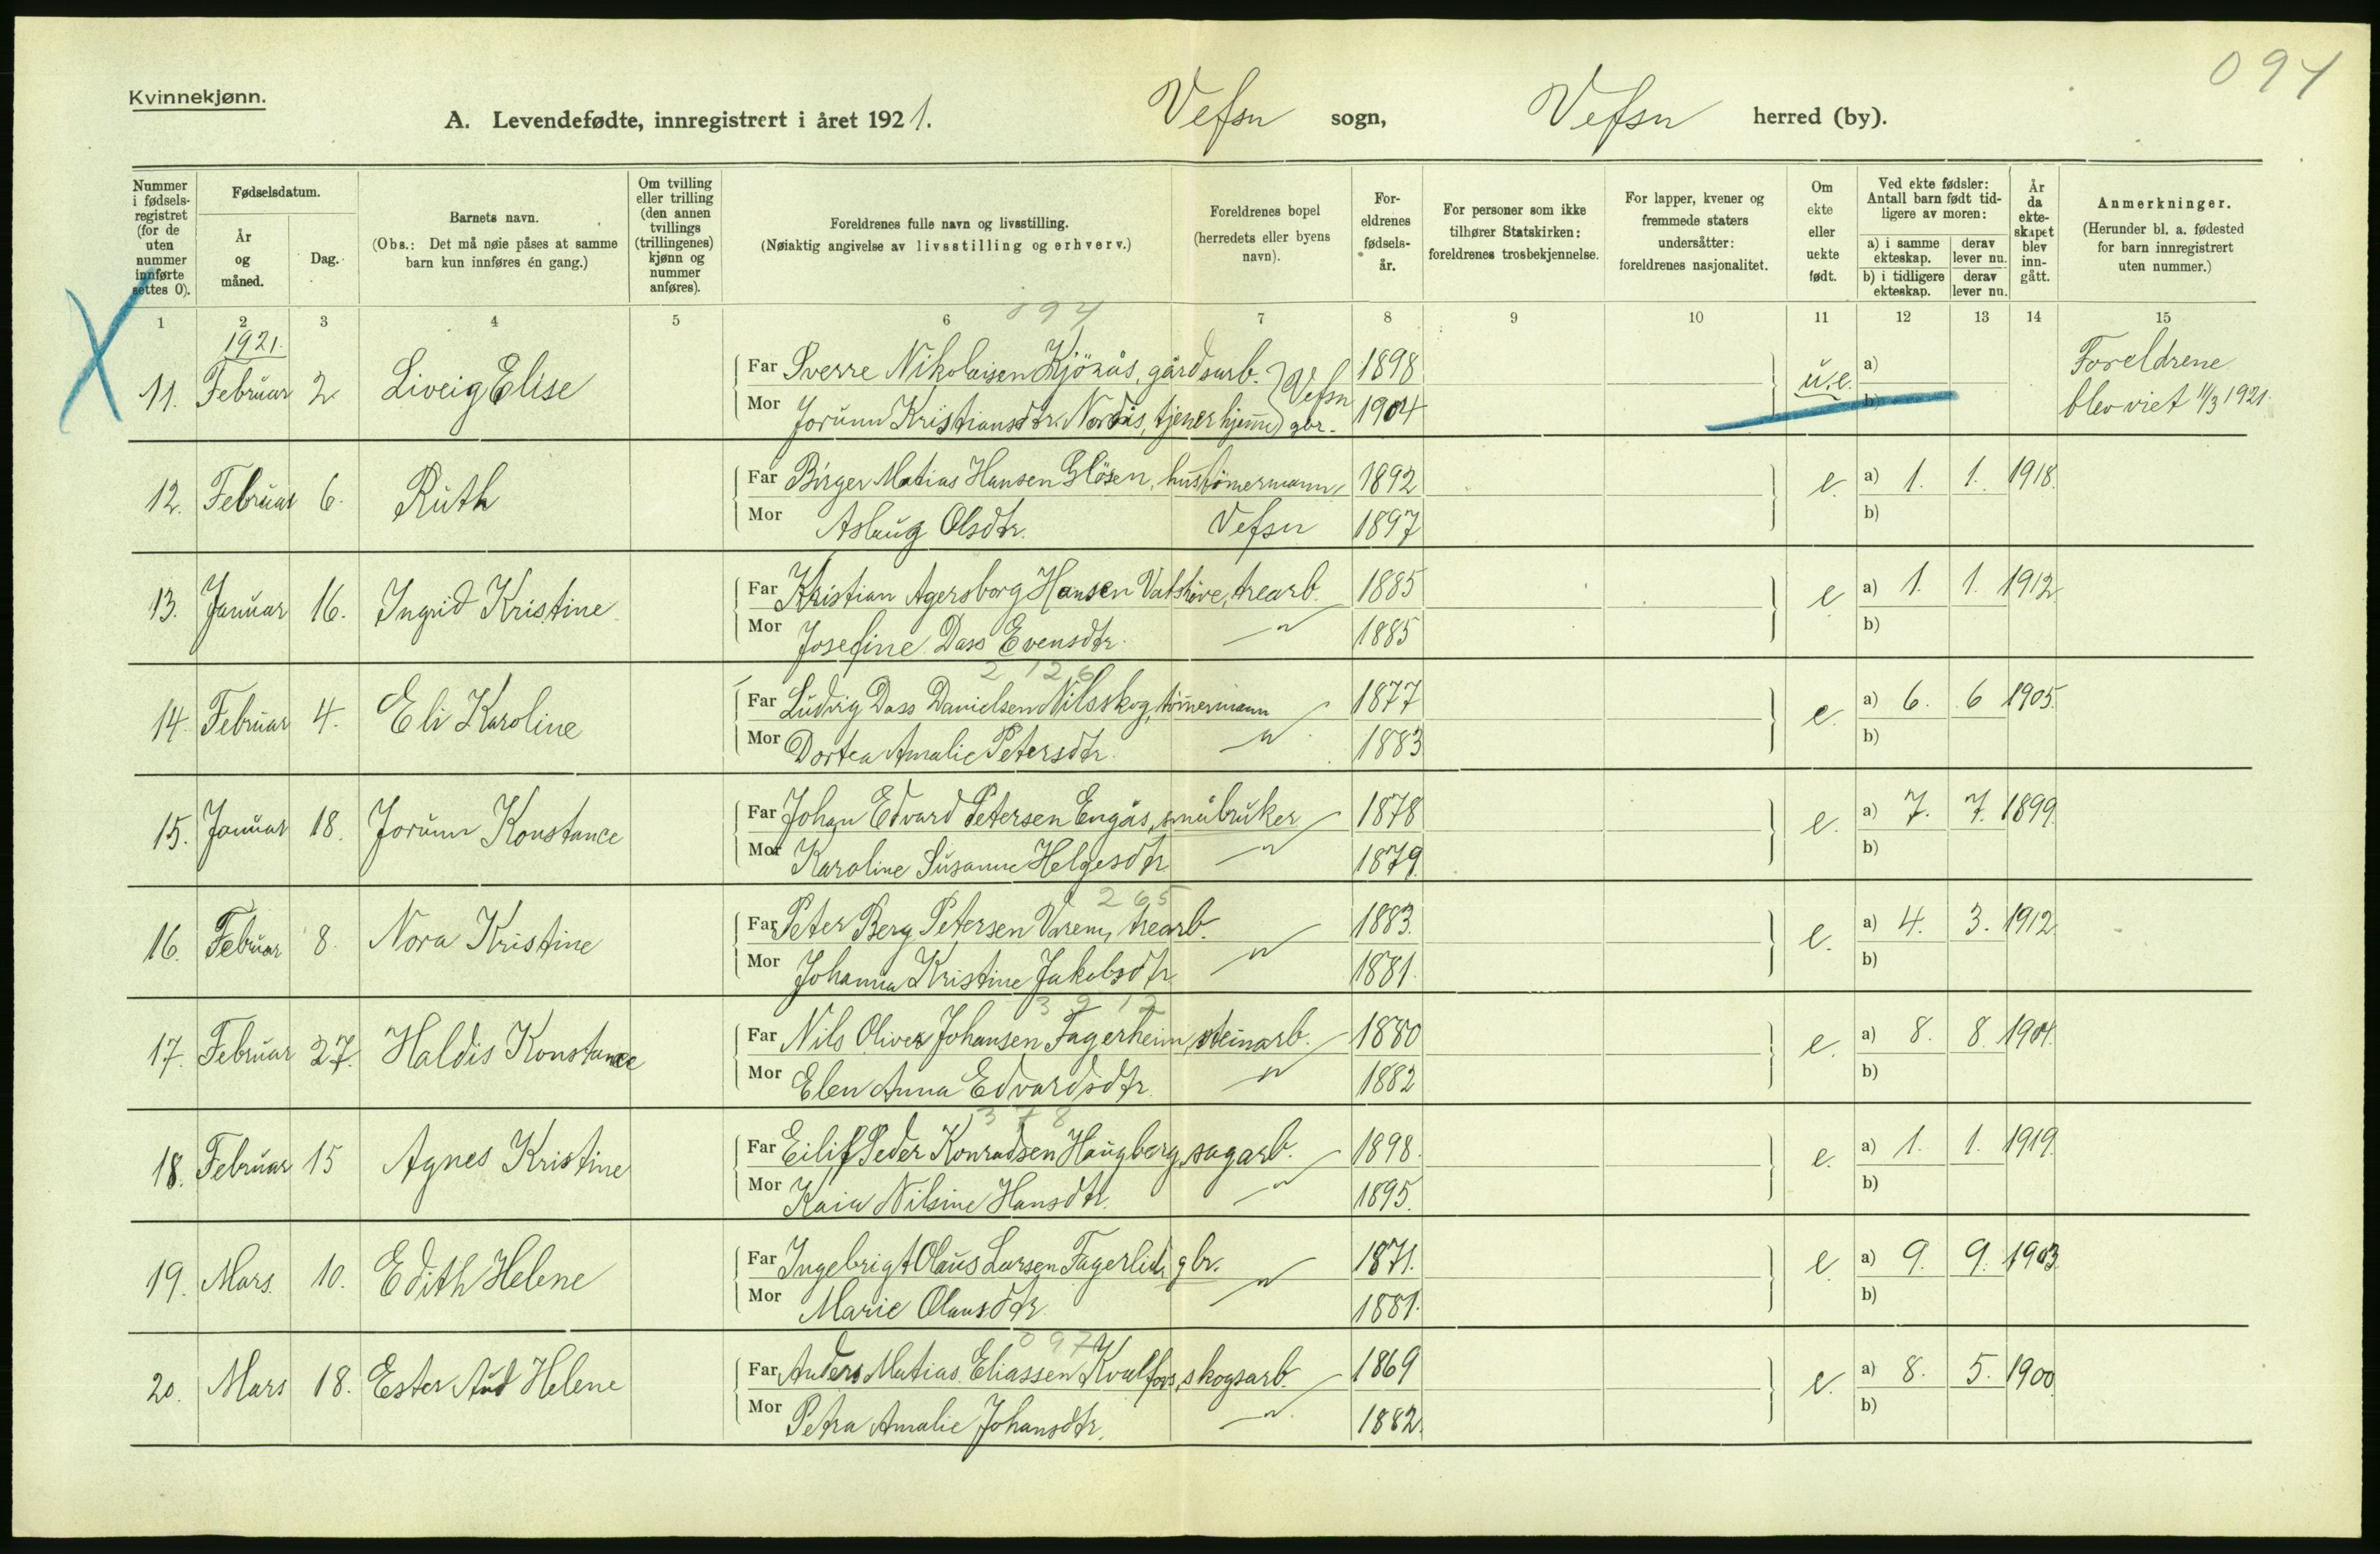 094
Kvinnekjønn.
A. Levendefødte, innregistrert i året 1921. Vefsn sogn, Vefsn herred (by).
Nummer i fødsels-registret (for de uten nummer innførte settes 0).
Fødselsdatum.
År og måned.
Dag.
Barnets navn.
(Obs.: Det må nøie påses at samme barn kun innføres én gang.)
Om tvilling eller trilling (den annen tvillings (trillingenes) kjønn og nummer anføres).
Foreldrenes fulle navn og livsstilling.
(Nøiaktig angivelse av livsstilling og erhverv.)
Foreldrenes bopel (herredets eller byens navn).
For-eldrenes fødsels-år.
For personer som ikke tilhører Statskirken: foreldrenes trosbekjennelse.
For lapper, kvener og fremmede staters undersåtter: foreldrenes nasjonalitet.
Om ekte eller uekte født.
Ved ekte fødsler: Antall barn født tid-ligere av moren:
a) i samme ekteskap.
derav lever nu.
b) i tidligere ekteskap.
derav lever nu.
År da ekte-skapet blev inn-gått.
Anmerkninger.
(Herunder bl. a. fødested for barn innregistrert uten nummer.)
1 2 3 4 5 6 7 8 9 10 11 12 13 14 15
1921. 094
11. Februar 2 Liveig Elise Far Sverre Nikolaisen Kjörås, gårdsarb. Vefsn 1898 u.e. a) Foreldrene
Mor Jorunn Kristiansdtr. Nordås, tjener hjemme gbr. 1904 b) blev viet 11/3 1921.
12. Februar 6. Ruth Far Birger Matias Hansen Glösen, hustömermann, 1892 e. a) 1. 1. 1918.
Mor Aslaug Olsdtr. Vefsn 1897 b)
13. Januar 16. Ingrid Kristine Far Kristian Agersborg Hansen Vatshöve, trearb. 1885 e. a) 1. 1. 1912
Mor Josefine Dass Evensdtr. — " — 1885 b)
2 126
14. Februar 4. Eli Karoline Far Ludvig Dass Danielsen Nilsskog, tömmermann 1877 e. a) 6. 6 1905.
Mor Dortea Amalie Petersdtr. — " — 1883 b)
15. Januar 18. Jorunn Konstance Far Johan Edvard Petersen Engås, småbruker 1878 e. a) 7. 7. 1899.
Mor Karoline Susanne Helgesdtr. — " — 1879. b)
265
16. Februar 8. Nora Kristine Far Peter Berg Petersen Varem, trearb. 1883. e. a) 4. 3. 1912.
Mor Johanna Kristine Jakobsdtr. — " — 1881. b)
3 9 12
17. Februar 27. Haldis Konstance Far Nils Oliver Johansen Fagerheim, steinarb. 1880 e. a) 8. 8. 1904.
Mor Elen Anna Edvardsdtr. — " — 1882 b)
3 7 8
18. Februar 15 Agnes Kristine Far Eilif Peder Konradsen Haugberg, sagarb. 1898. e. a) 1. 1. 1919.
Mor Kaia Nilsine Hansdtr. — " — 1895. b)
19. Mars. 10. Edith Helene Far Ingebrigt Olaus Larsen Fagerlid, gbr. 1871. e. a) 9. 9. 1903.
Mor Marie Olausdtr. — " — 1881. b)
097
20. Mars 18. Ester Aud Helene Far Anders Matias Eliassen Kvalfors, skogsarb. 1869 e. a) 8. 5. 1900
Mor Petra Amalie Johansdtr. — " — 1882. b)